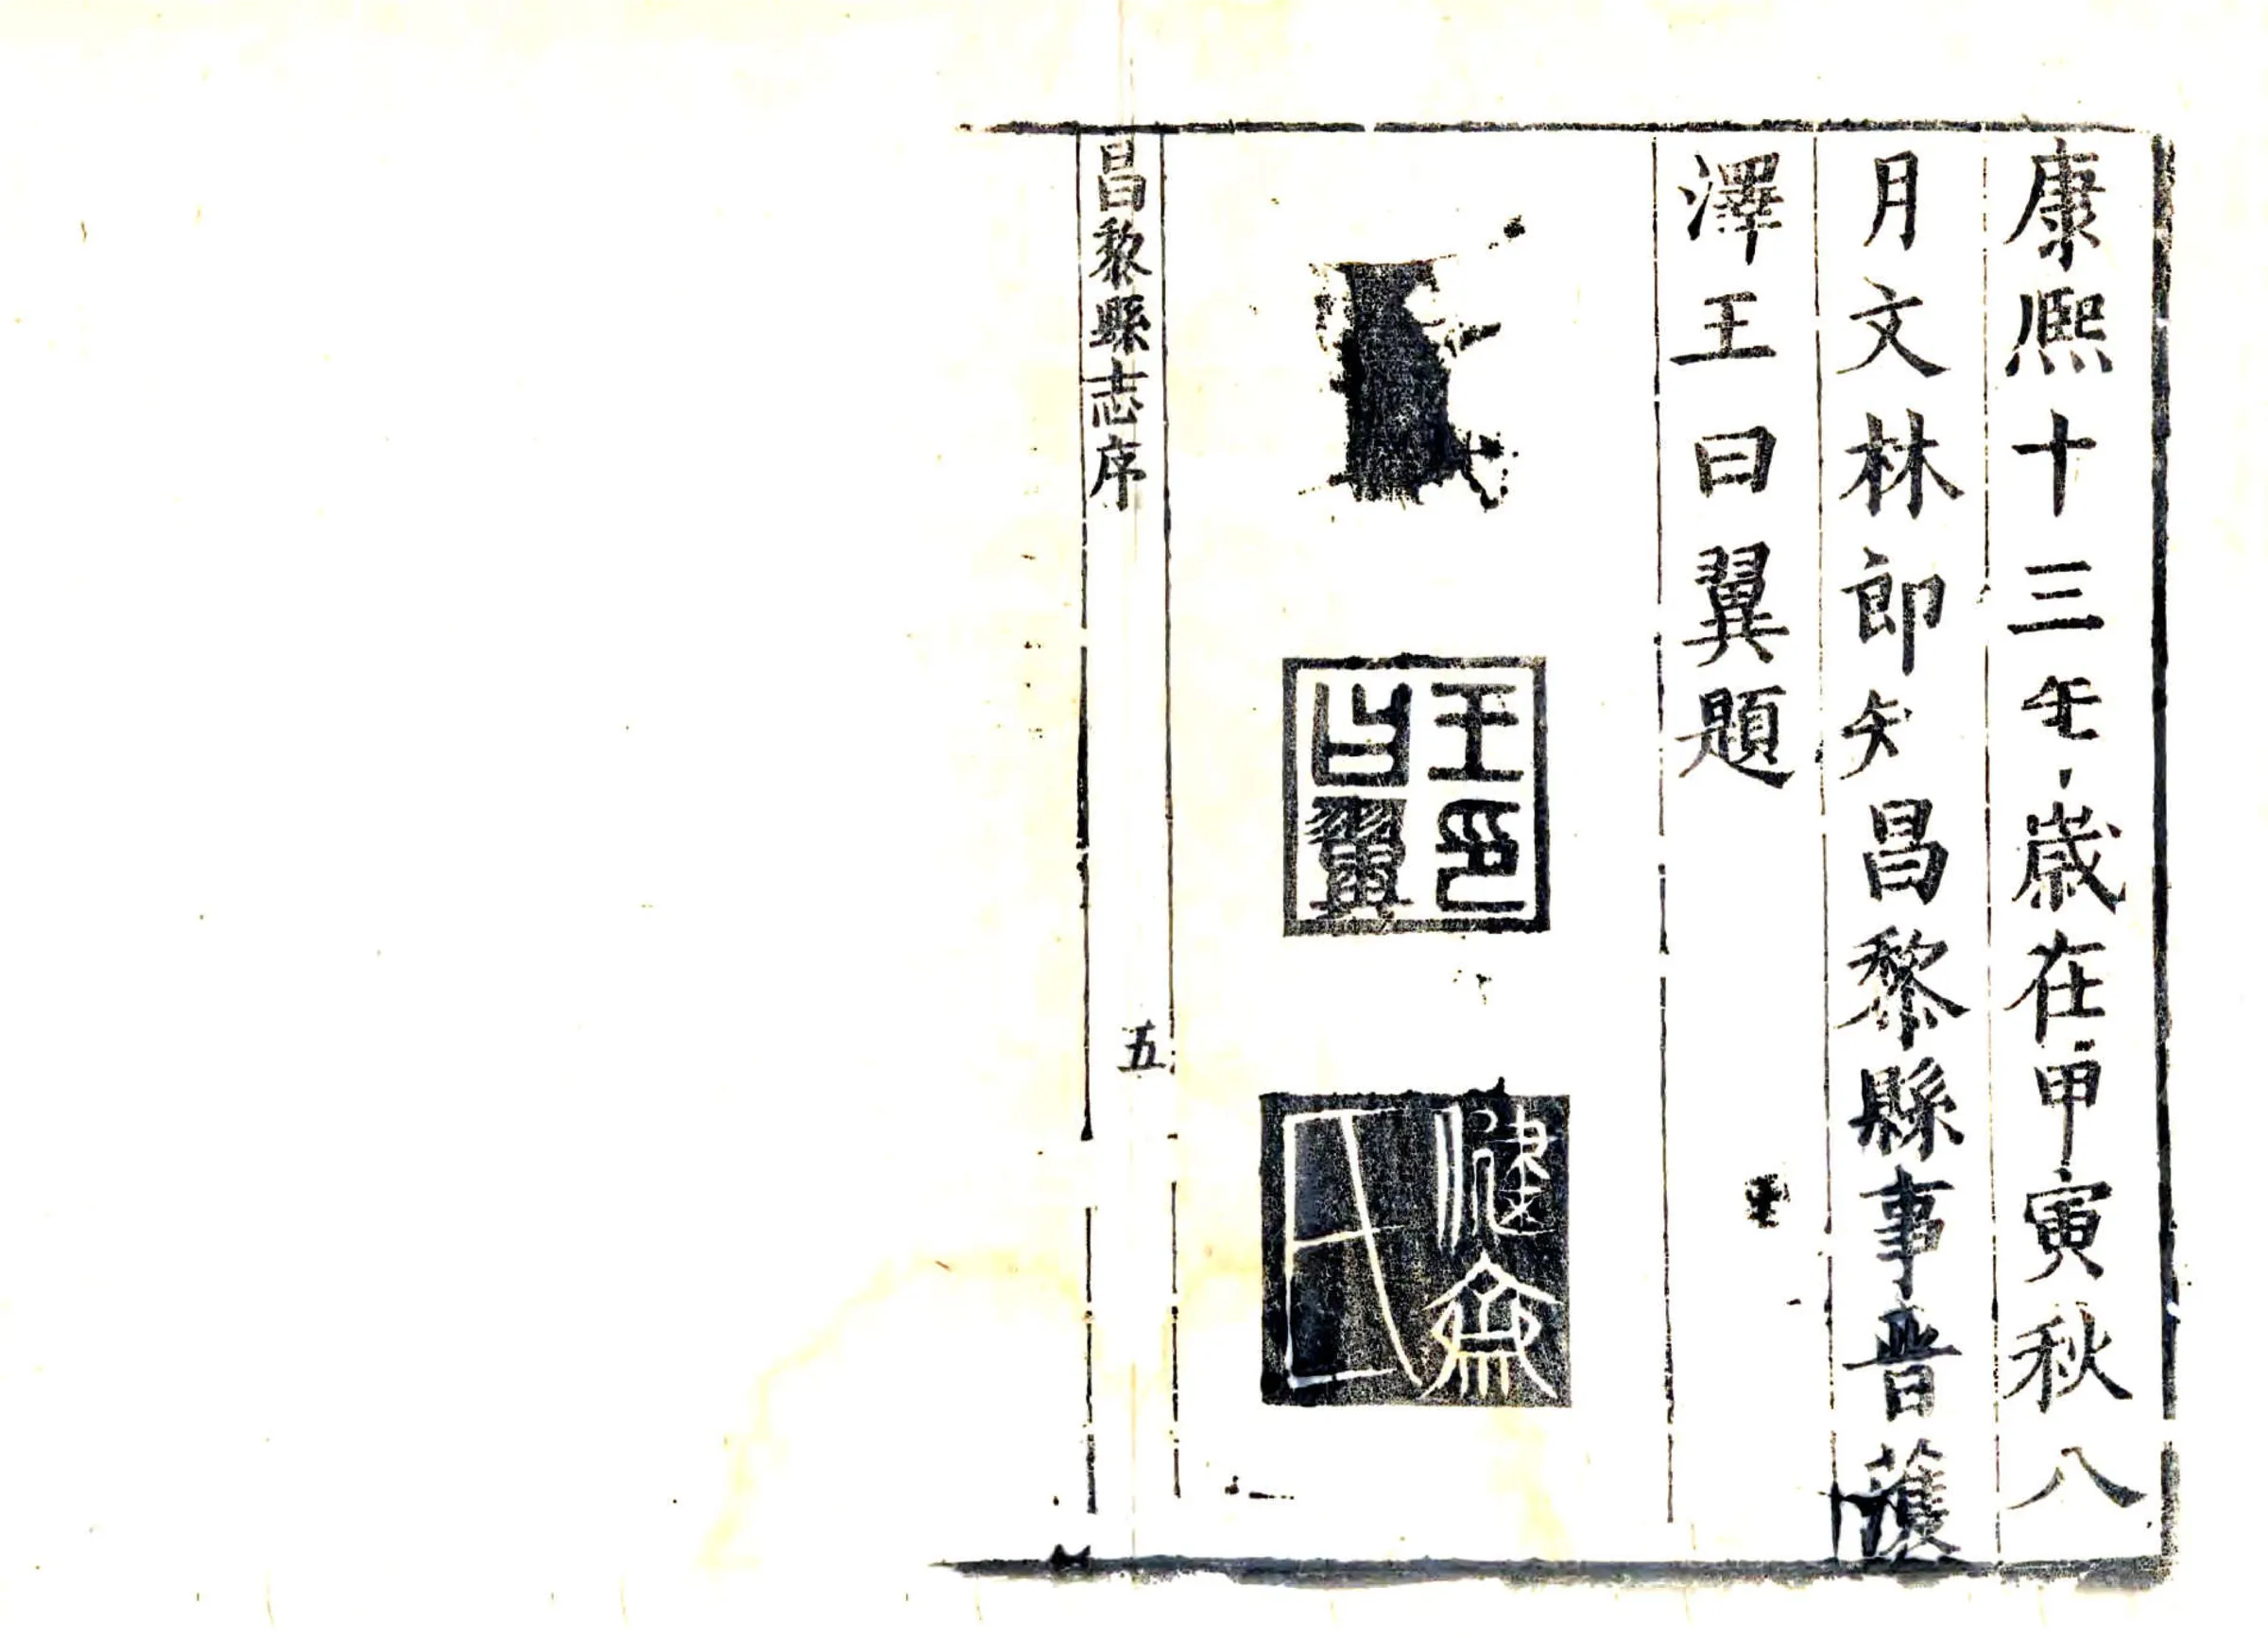 康熙十三年歲在甲寅秋八
月文林郎知昌黎縣事晉濩
澤王曰翼題
王印曰翼
健齋氏
昌黎縣志序
五